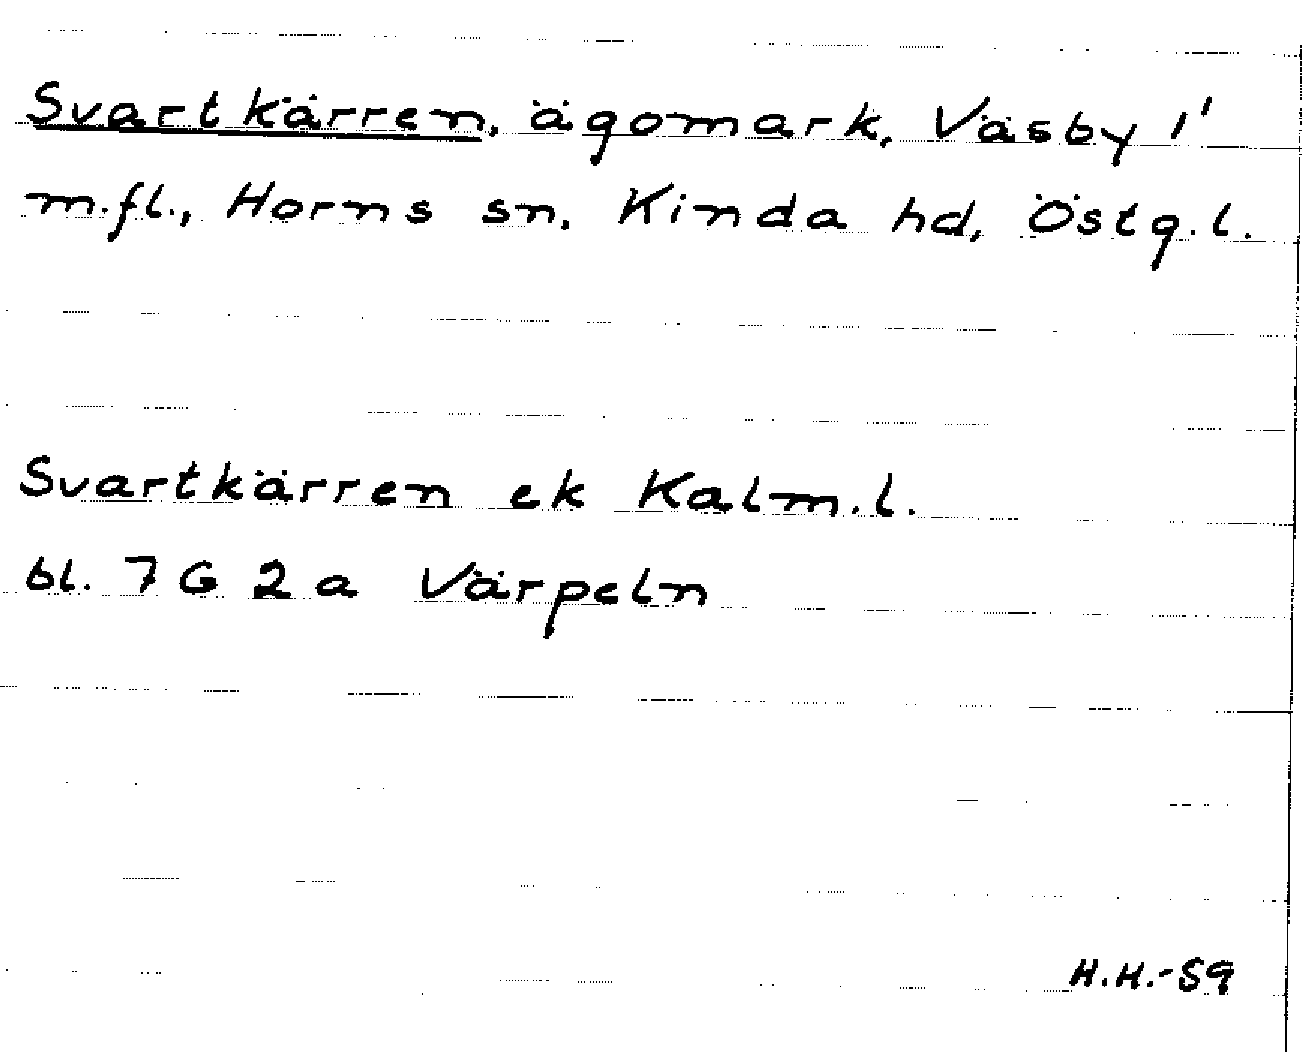 Svartkärren, ägomark, Väsby 1'
m.fl., Horns sn, Kinda hd, Östg.l.
Svartkärren ek Kalm.l.
bl. 7 G 2 a Värpeln
H.H.-89